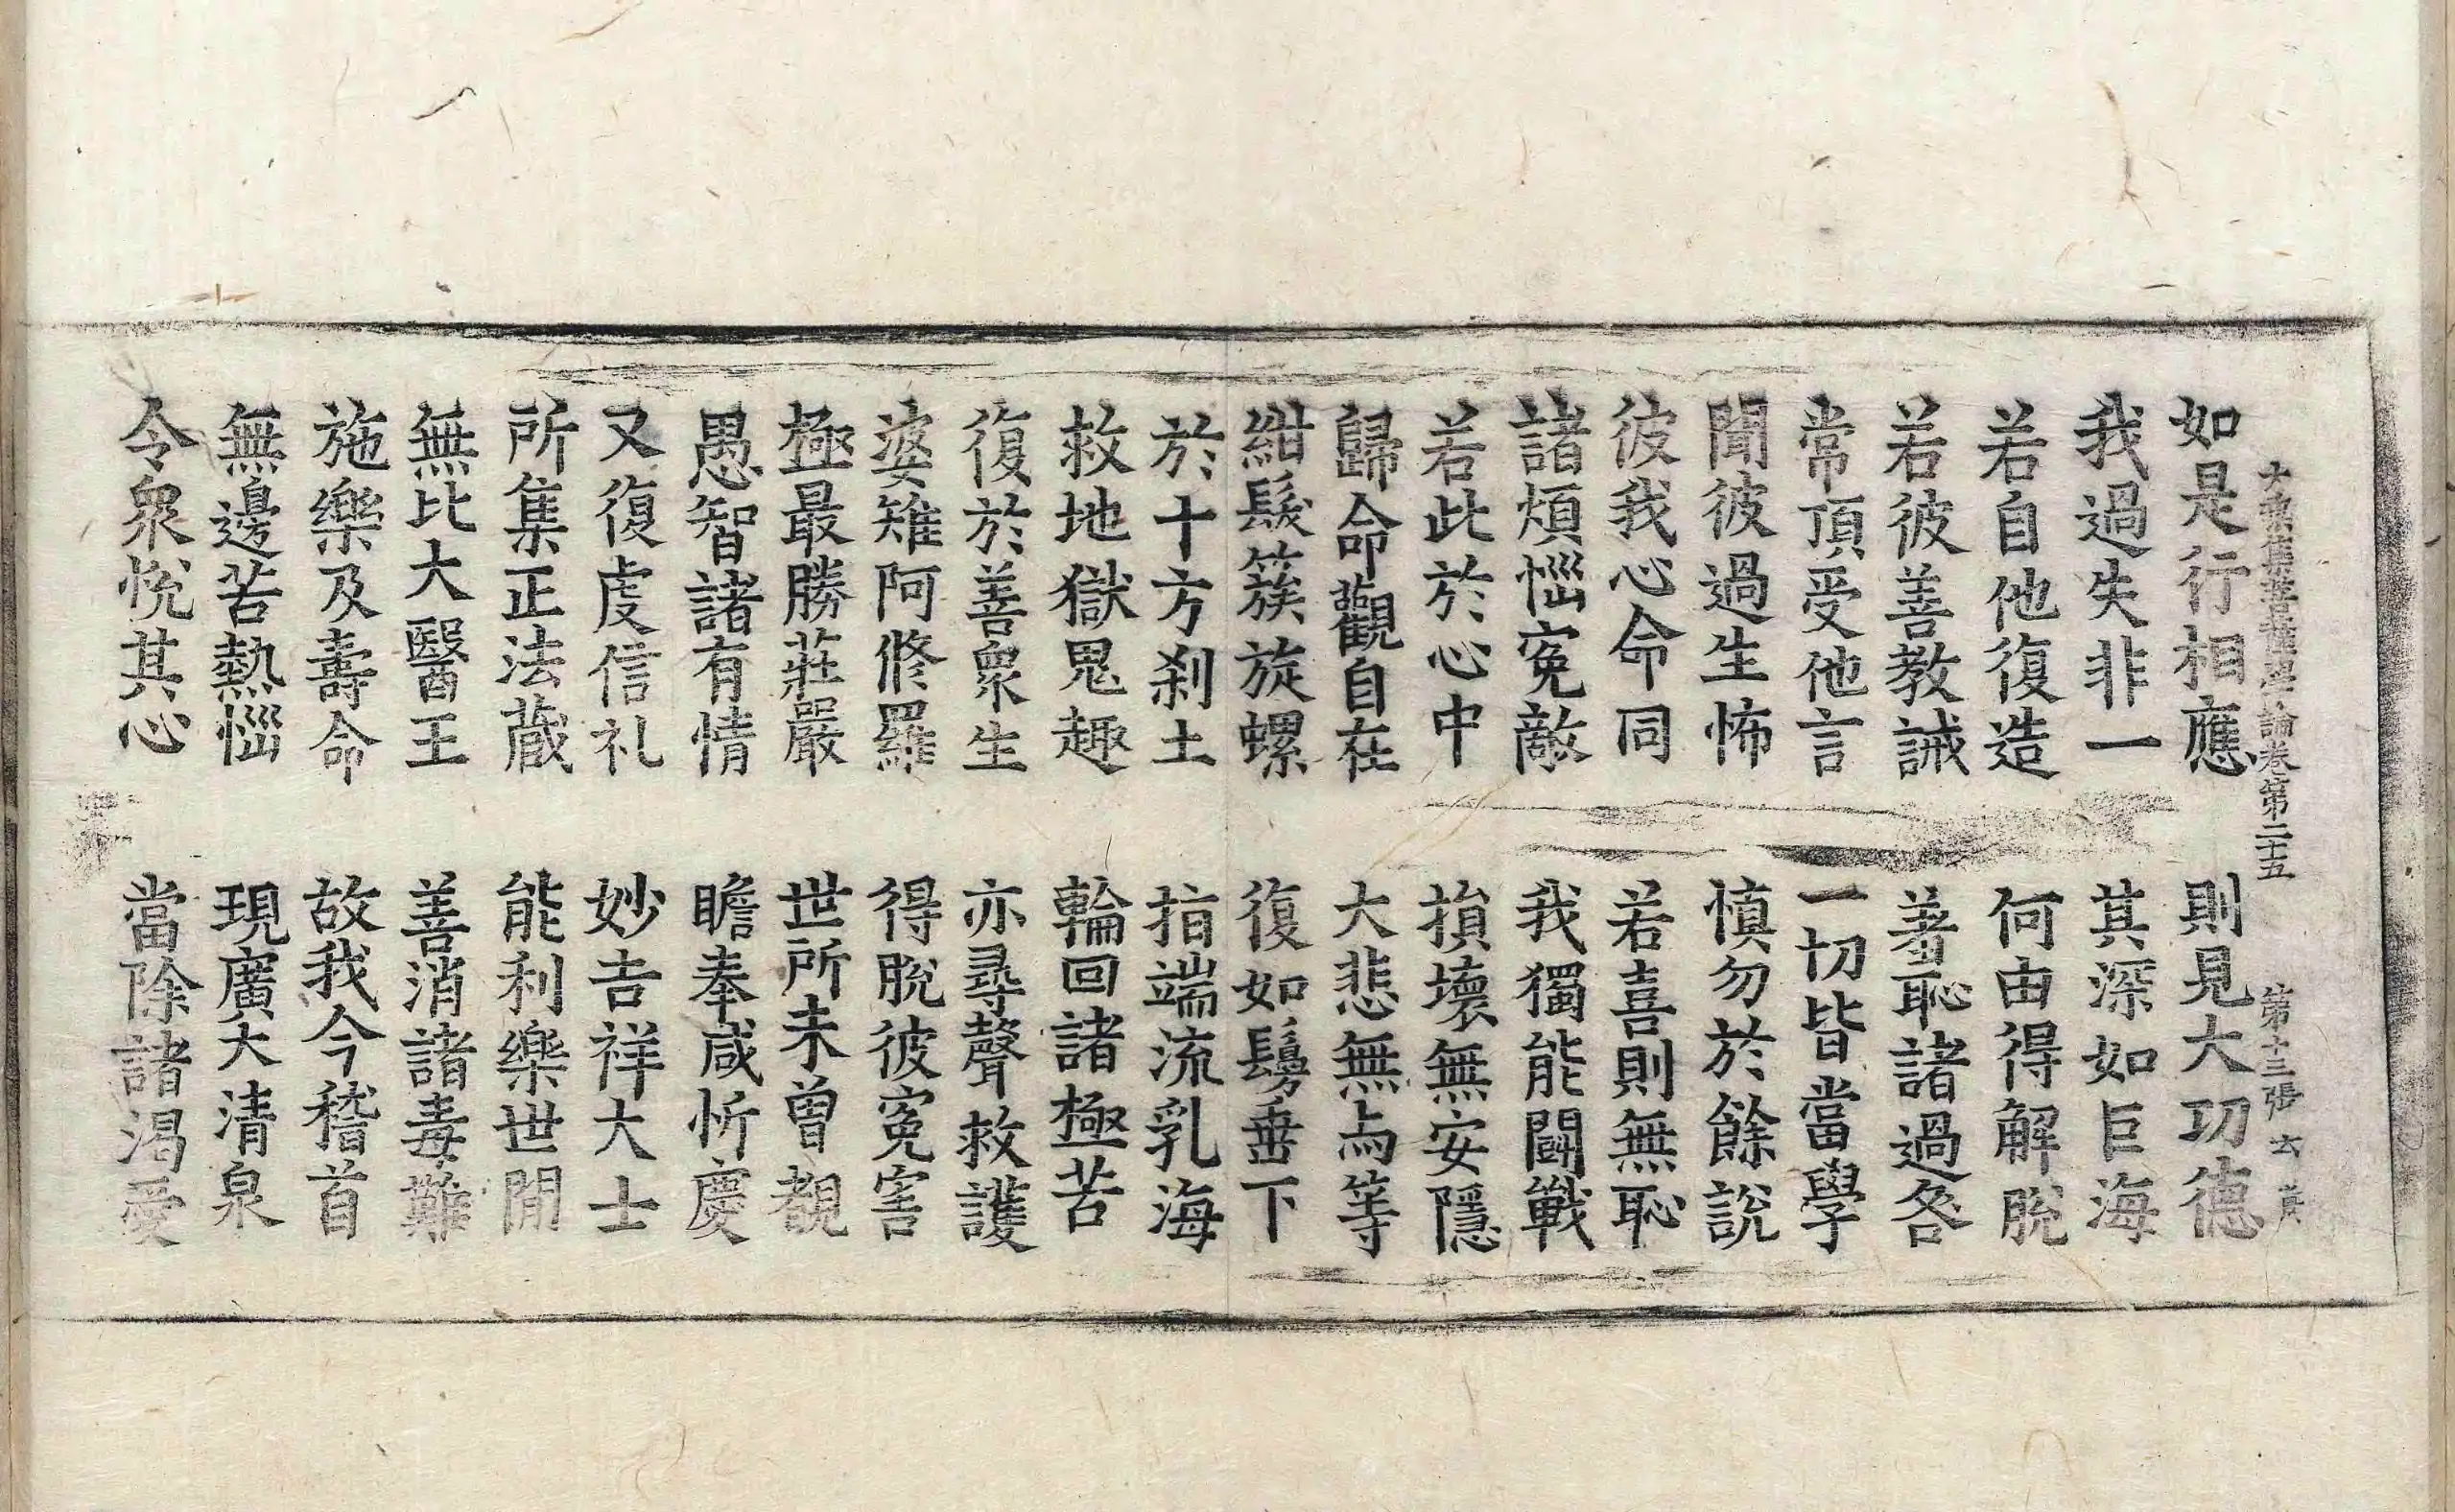 大乘集菩薩學論卷第二十五 第十三張 去
如是行相應 則見大功德
我過失非一 其深如巨海
若自他復造 何由得解脫
若彼善教誡 著恥諸過咎
常頂受他言 一切皆當學
聞彼過生怖 慎勿於餘說
彼我心命同 若喜則無恥
諸煩惱寃敵 我獨能鬪戰
若此於心中 損壞無安隱
歸命觀自在 大悲無与等
紺髮簇旋螺 復如鬘垂下
於十方刹土 指端流乳海
救地獄鬼趣 輪回諸極苦
復於善衆生 亦尋聲救護
婆雉阿修羅 得脫彼寃害
極最勝莊嚴 世所未曾覩
愚智諸有情 瞻奉咸忻慶
又復虔信礼 妙吉祥大士
所集正法藏 能利樂世閒
無比大醫王 善消諸毒難
施樂及壽命 故我今稽首
無邊苦熱惱 現廣大清泉
令衆悅其心 當除諸渴愛